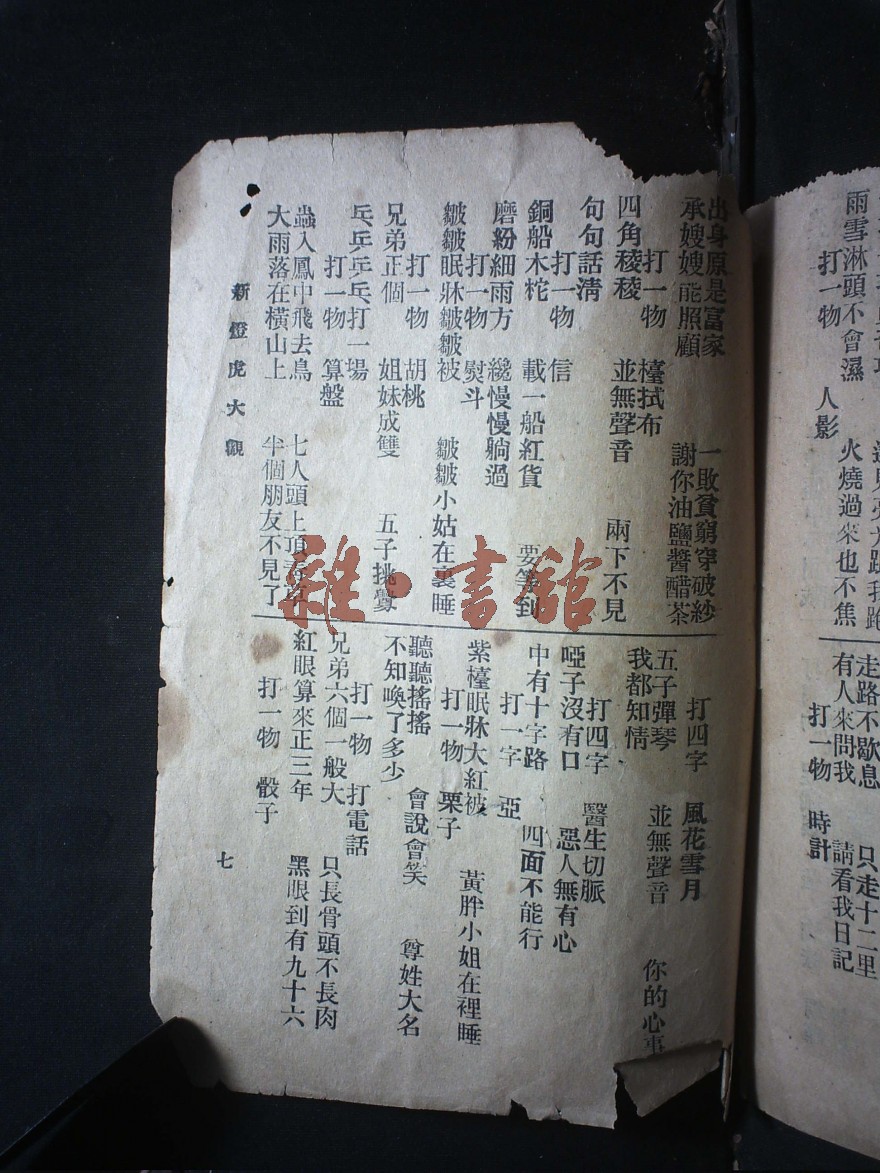 雨雪淋頭不會濕 火燒過來也不焦
打一物 人影
走路不歇息 只走十二里
有人來問我 請看我日記
打一物 時計
出身原是富家 一敗貧窮穿破紗
承嫂嫂能照顧 謝你油鹽醬醋茶
打一物 檯拭布
四角稜稜 並無聲音 兩下不見
句句話淸
打一物 信
銅船木柁 載一船紅貨 要等到
磨紛細雨方 纔慢慢躺過
打一物 熨斗
皺皺眠牀皺皺被 皺皺小姑在裏睡
打一物 胡桃
兄弟正個 姐妹成雙 五子挑釁
乓乒乒乓打一場
打一物 算盤
蟲入鳳中飛去鳥 七人頭上頂
大雨落在橫山上 半個朋友不見了
打四字 風花雪月
五子彈琴 並無聲音 你的心事
我都知情
打四字 醫生切脈
啞子沒有口 惡人無有心
中有十字路 四面不能行
打一字 亞
紫檯眠牀大紅被 黃胖小姐在裡睡
打一物 栗子
聽聽搖搖 會說會笑 尊姓大名
不知喚了多少
打一物 打電話
兄弟六個一般大 只長骨頭不長肉
紅眼算來正三年 黑眼到有九十六
打一物 骰子
新燈虎大觀
七
雜·書舘